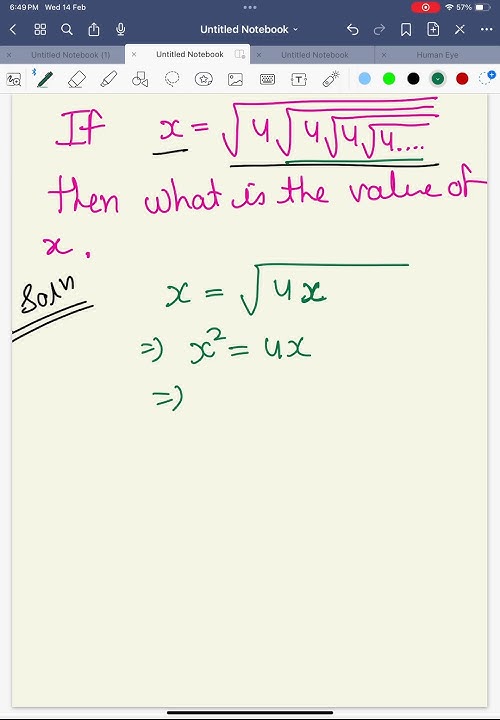 6:49 PM Wed 14 Feb
57%
Untitled Notebook
Untitled Notebook (1)
Untitled Notebook
Untitled Notebook
Human Eye
If x = √4√4√4√4....
then what is the value of
x.
Solⁿ
x = √4x
⇒ x² = 4x
⇒